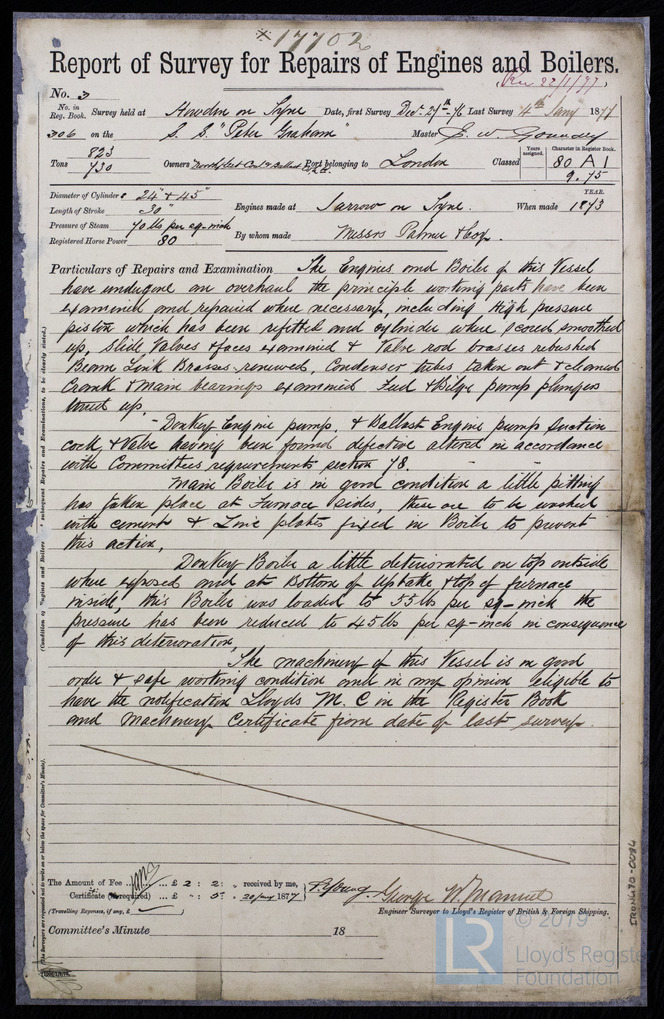 * 17702
Report of Survey for Repairs of Engines and Boilers.
Rec 22/1/77
No. 3
No. in Reg. Book. Survey held at Howdon on Tyne Date, first Survey Dec. 27th -76 Last Survey 4th Jany 1877
306 on the S. S. "Peter Graham" Master E. W.
Tons 823
730
Owners Coal & Ballast Port belonging to London
Classed Years assigned. Character in Register Book. 80 A 1
9. 75
Diameter of Cylinders 24" & 45"
Length of Stroke 30"
Pressure of Steam 70 lbs per sq-inch
Registered Horse Power 80
Engines made at Jarrow on Tyne. When made YEAR. 1873
By whom made Messrs Palmer & Coy.
Particulars of Repairs and Examination The Engines and Boiler of this Vessel
have undergone an overhaul the principle working parts have been
examined and repaired where necessary, including High pressure
piston which has been refitted and cylinder where scored smoothed
up, Slide Valves & faces examined & Valve rod brasses rebushed
Beam Link Brasses renewed, Condenser tubes taken out & cleaned
Crank & Main bearings examined Fuel & Bilge pump plungers
turned up,
- Donkey Engine pump, & Ballast Engine pump suction
cock, & Valve having been found defective altered in accordance
with Committees requirements section 78. - -
Main Boiler is in good condition a little pitting
has taken place at Furnace sides, these are to be washed
with cement & Zinc plates fixed in Boiler to prevent
this action,
Donkey Boiler a little deteriorated on top outside
where exposed and at Bottom of Uptake & top of furnace
inside, this Boiler was loaded to 55 lbs per sq-inch the
pressure has been reduced to 45 lbs per sq-inch in consequence
of this deterioration,
The machinery of this Vessel is in good
order & safe working condition and in my opinion eligible to
have the notification Lloyds M. C in the Register Book
and Machinery Certificate from date of last survey.
The Amount of Fee ... £ 2 : 2 : " received by me,
Certificate (if required) ... £ " : 5 : " 20 Jany 1877
(Travelling Expenses, if any, £
T. Young George W. Manuel
Engineer Surveyor to Lloyd's Register of British & Foreign Shipping.
Committee's Minute 18
(Condition of Engines and Boilers subsequent Repairs and Examinations, to be clearly stated.)
IRON670-0086
© 2019
LR
Lloyd's Register
Foundation